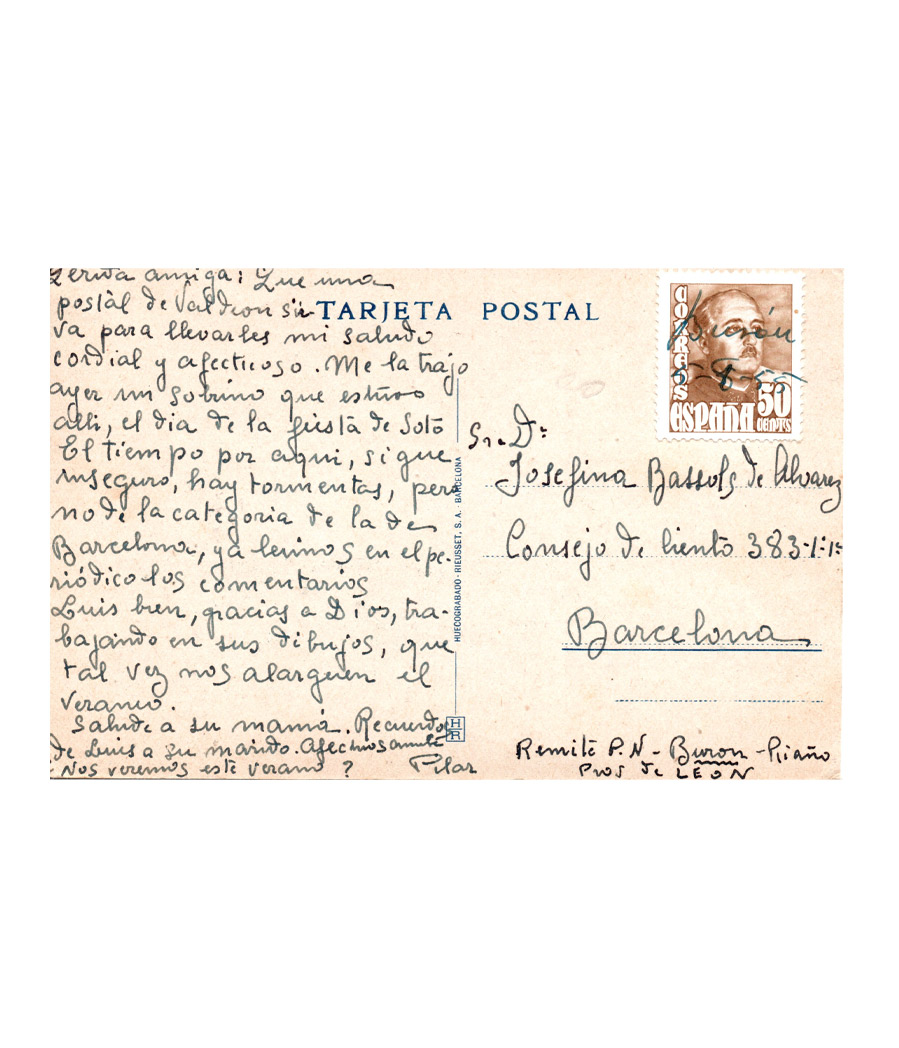 Querida amiga: Que una
postal de Valdeon sir-
va para llevarles mi saludo
cordial y afectuoso. Me la trajo
ayer un sobrino que estuvo
alli, el dia de la fiesta de Soto
El tiempo por aqui, sigue
inseguro, hay tormentas, pero
no de la categoria de la de
Barcelona, ya leimos en el pe-
riódico los comentarios
Luis bien, gracias a Dios, tra-
bajando en sus dibujos, que
tal vez nos alarguen el
verano.
Salude a su mamá. Recuerdos
de Luis a su marido. Afectuosamente
Nos veremos este verano? Pilar
TARJETA POSTAL
HUECOGRABADO - RIEUSSET, S. A. - BARCELONA
H R
CORREOS
ESPAÑA
50 CENTS
Burón
Sra Dª
Josefina Bassols de Alvarez
Consejo de Ciento 383-1º-1ª
Barcelona
Remite P. N - Buron - Riaño
Prov de LEON